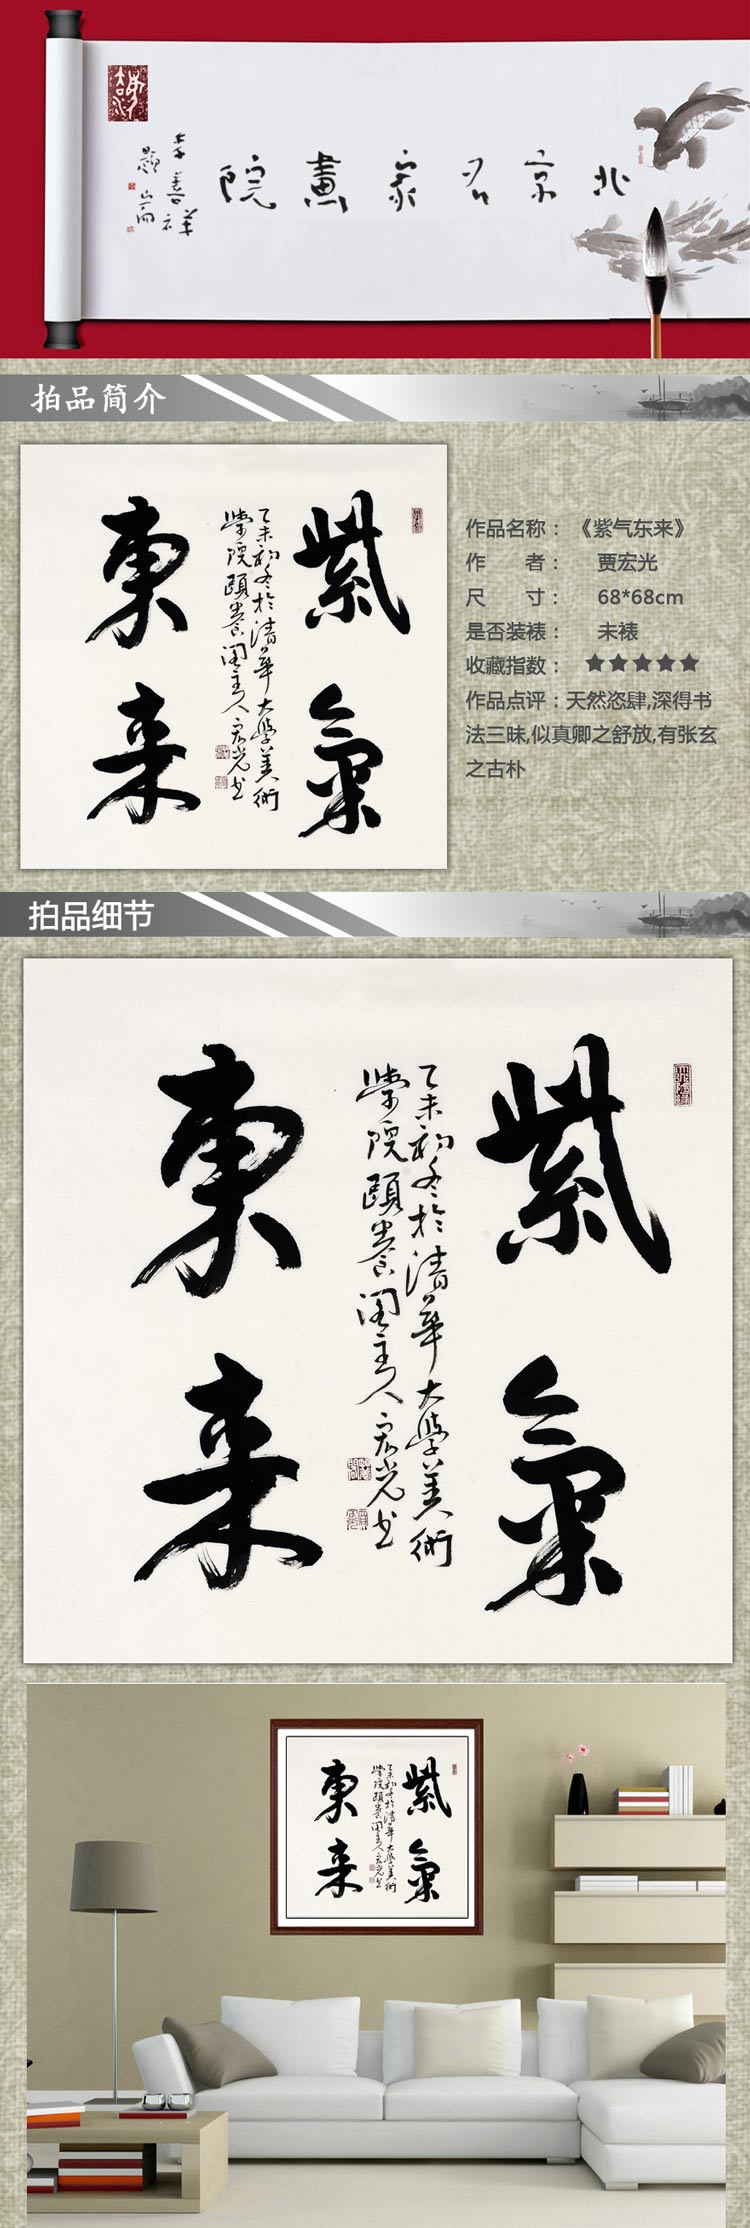 北京名家畫院
李善祥
题
拍品简介
紫氣
東来
乙未初冬於清華大學美術
學院頤養閣主人宏光书
作品名称：《紫气东来》
作 者： 贾宏光
尺 寸： 68*68cm
是否装裱： 未裱
收藏指数： ★★★★★
作品点评：天然恣肆,深得书
法三昧,似真卿之舒放,有张玄
之古朴
拍品细节
紫氣
東来
乙未初冬於清華大學美術
學院頤養閣主人宏光书
紫氣
東来
乙未初冬於清華大學美術
學院頤養閣主人宏光书